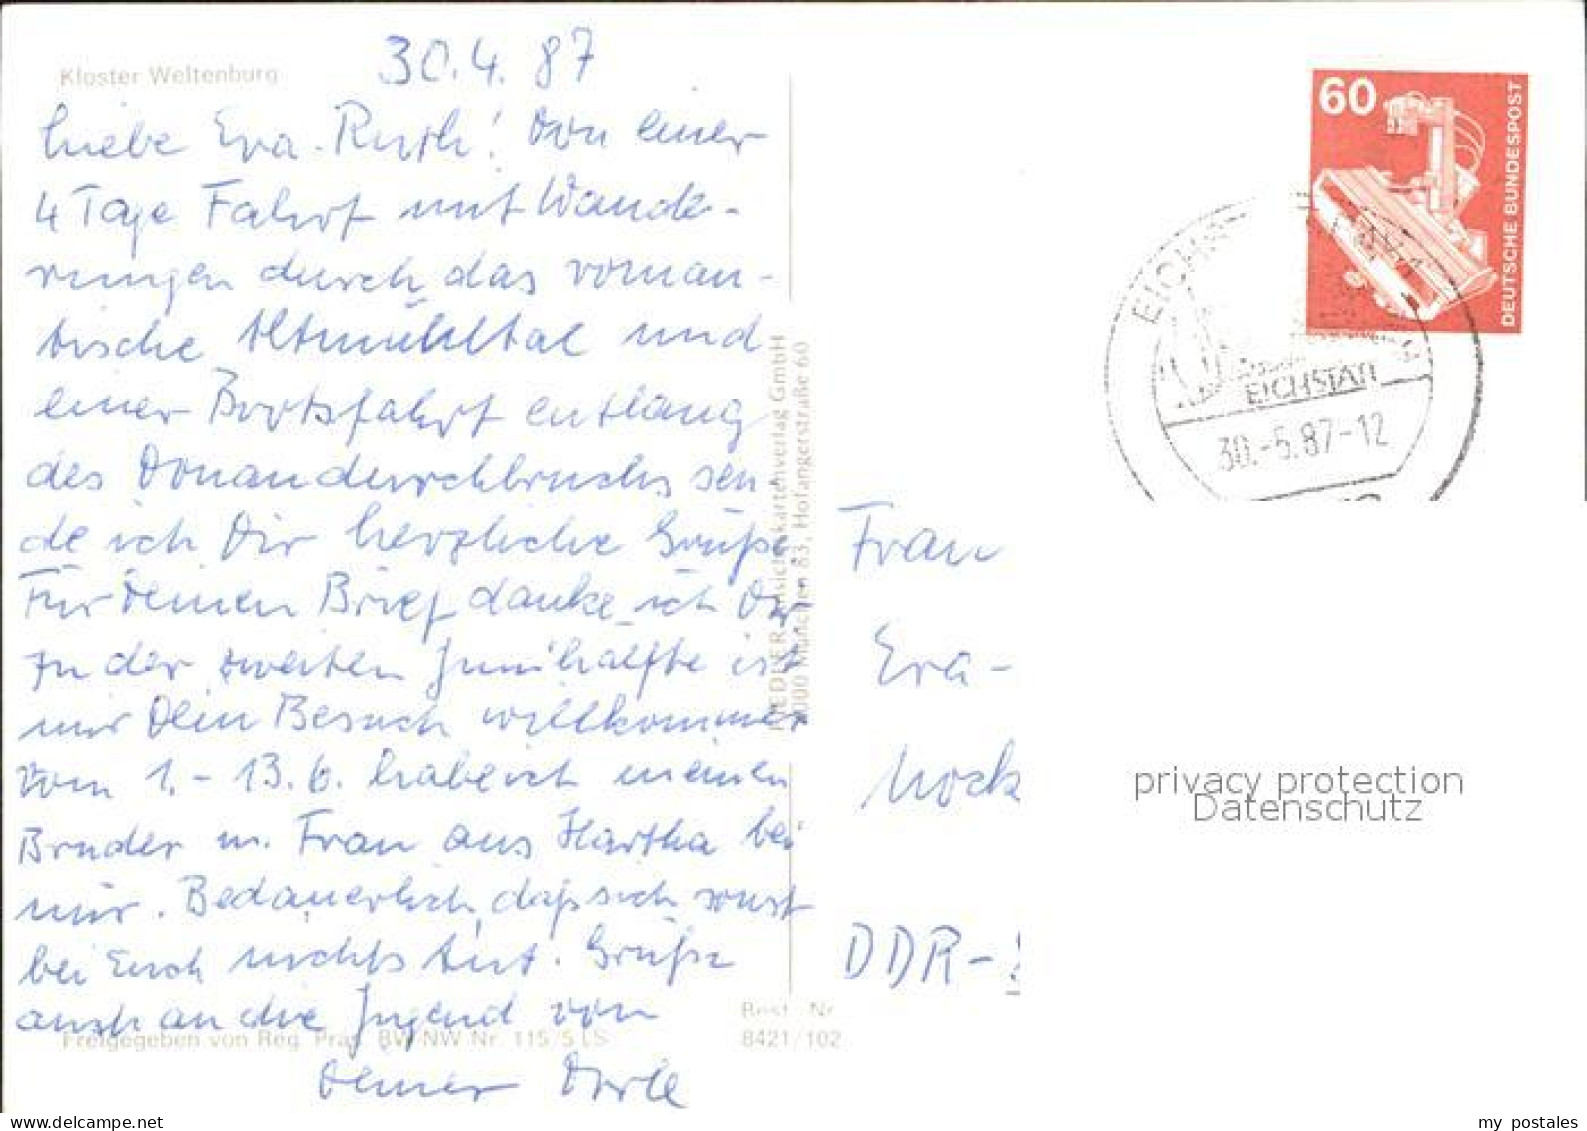 Kloster Weltenburg
30.4.87
Liebe Eva-Ruth! Von einer
4 Tage Fahrt mit Wande-
rungen durch das roman-
tische Altmühltal und
einer Bootsfahrt entlang
des Donaudurchbruchs sen-
de ich Dir herzliche Grüße.
Für Deinen Brief danke ich Dir
In der zweiten Junihälfte ist
mir Dein Besuch willkommen
vom 1.-13.6. habe ich meinen
Bruder m. Frau aus Hartha bei
mir. Bedauerlich, daß sich sonst
bei Euch nichts tut. Grüße
auch an die Jugend von
Deiner
Freigegeben von Reg. Präs. BW-NW Nr. 115/5 LS
Best. Nr.
8421/102
RIEDLER Ansichtskartenverlag GmbH
8000 München 83, Hofangerstraße 60
60
DEUTSCHE BUNDESPOST
EICHSTÄTT
30.-5.87-12
Frau
Eva-
DDR-
privacy protection
Datenschutz
www.delcampe.net
my_postales